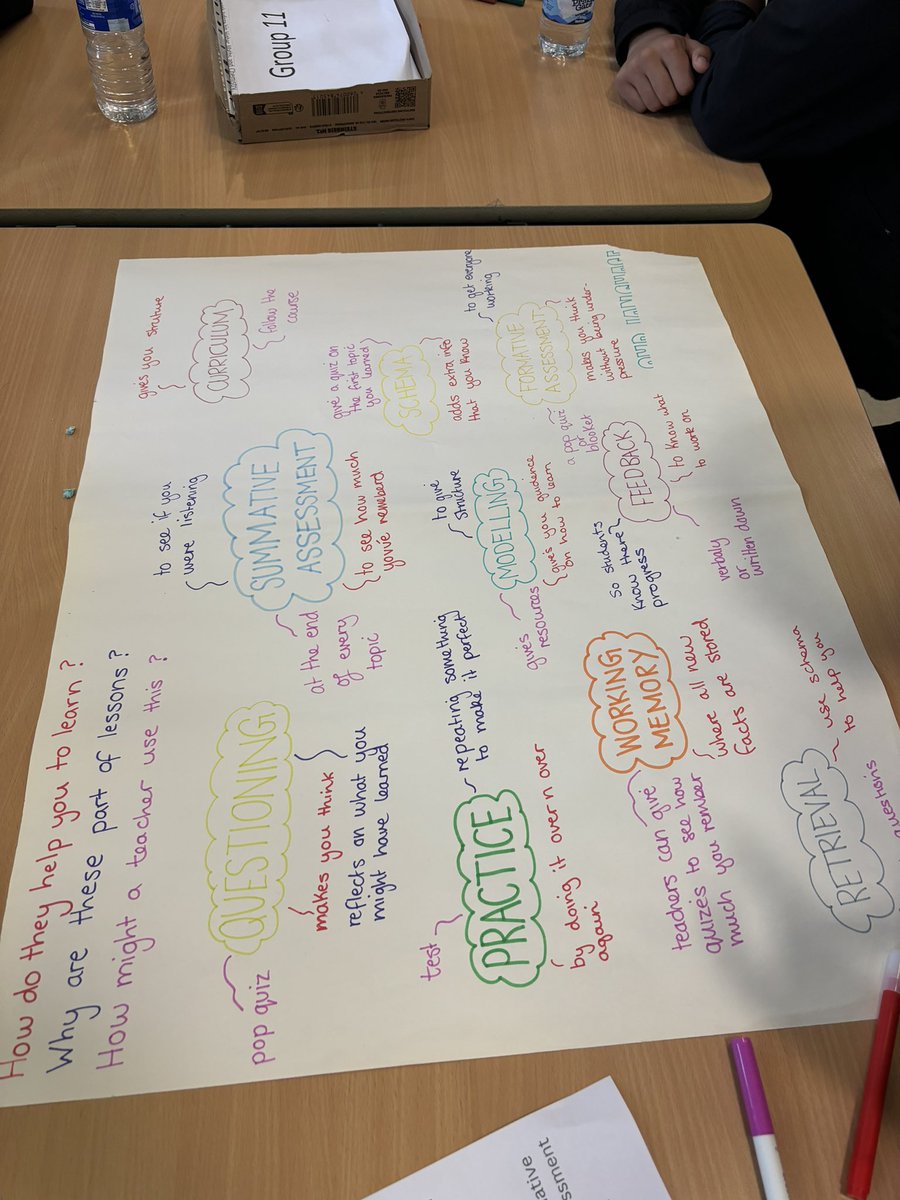 How do they help you to learn?
Why are these part of lessons?
How might a teacher use this?
pop quiz
QUESTIONING
makes you think
reflects on what you
might have learned
to see if you
were listening
SUMMATIVE
ASSESSMENT
at the end
of every
topic
to see how much
you've remeberd
gives you struture
CURRICULUM
follow the
course
test
PRACTICE
repeating something
to make it perfect
by doing it over n over
again
to give
structure
MODELLING
gives
resources
gives you guidence
on how to learn
give a quiz on
the first topic
you learned
SCHEMA
adds extra info
that you know
to get everyone
working
FORMATIVE
ASSESSMENT
a pop quiz
or
blooket
makes you think
without being under-
pressure
teachers can give
quizes to see how
much you rember
WORKING
MEMORY
where all new
facts are stored
so students
know there
progress
FEEDBACK
to know what
to work on
verbaly
or
written down
RETRIEVAL
use schema
to help you
questions
Group 11
ative
ssment